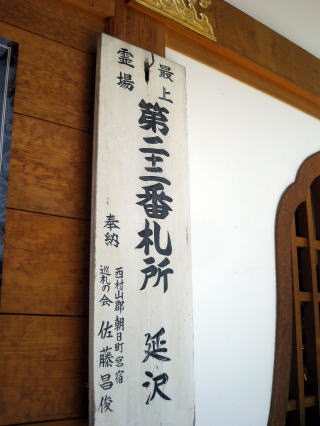 最上
霊場
第二十二番札所 延沢
奉納
西村山郡朝日町宮宿
巡札の会 佐藤昌俊